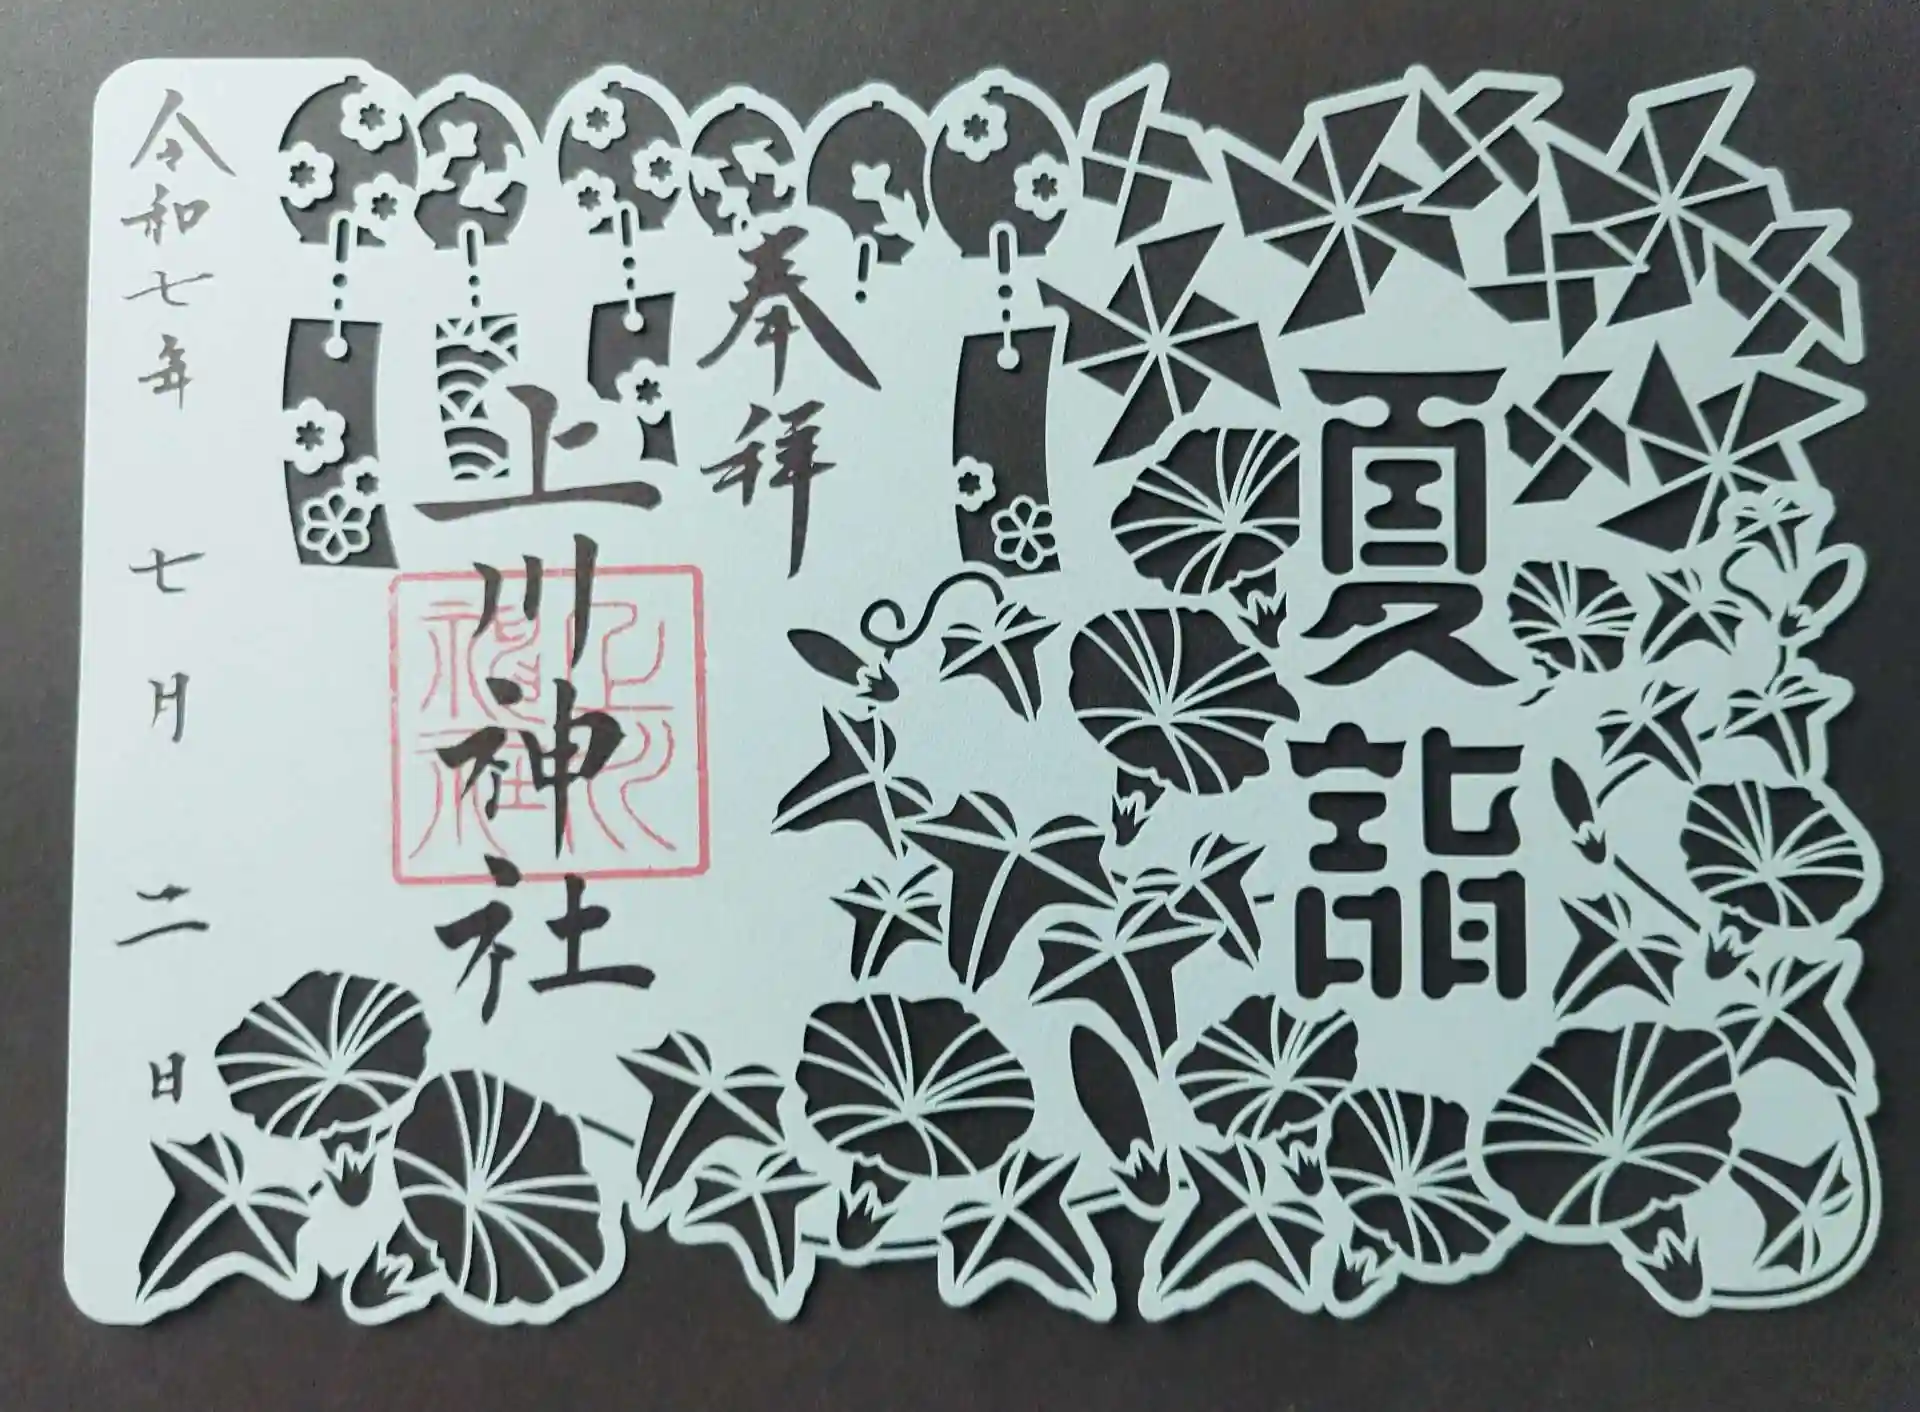 夏詣
奉拝
上川神社
上川
神社
令和七年七月二日